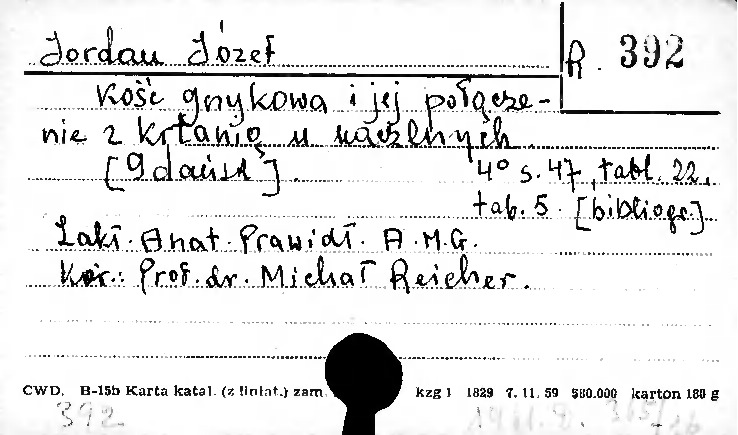 Jordan Józef
R. 392
Kość gnykowa i jej połącze-
nie z krtanią u naczelnych
[Gdańsk].
4° s. 47, tabl. 22,
tab. 5. [bibliogr.]
Zakł. Anat. Prawidł. A.M.G.
Kier.: Prof. dr. Michał Reicher.
CWD. B-15b Karta katal. (z liniat.) zam. kzg 1 1829 7.11.59 580.000 karton 180 g
392